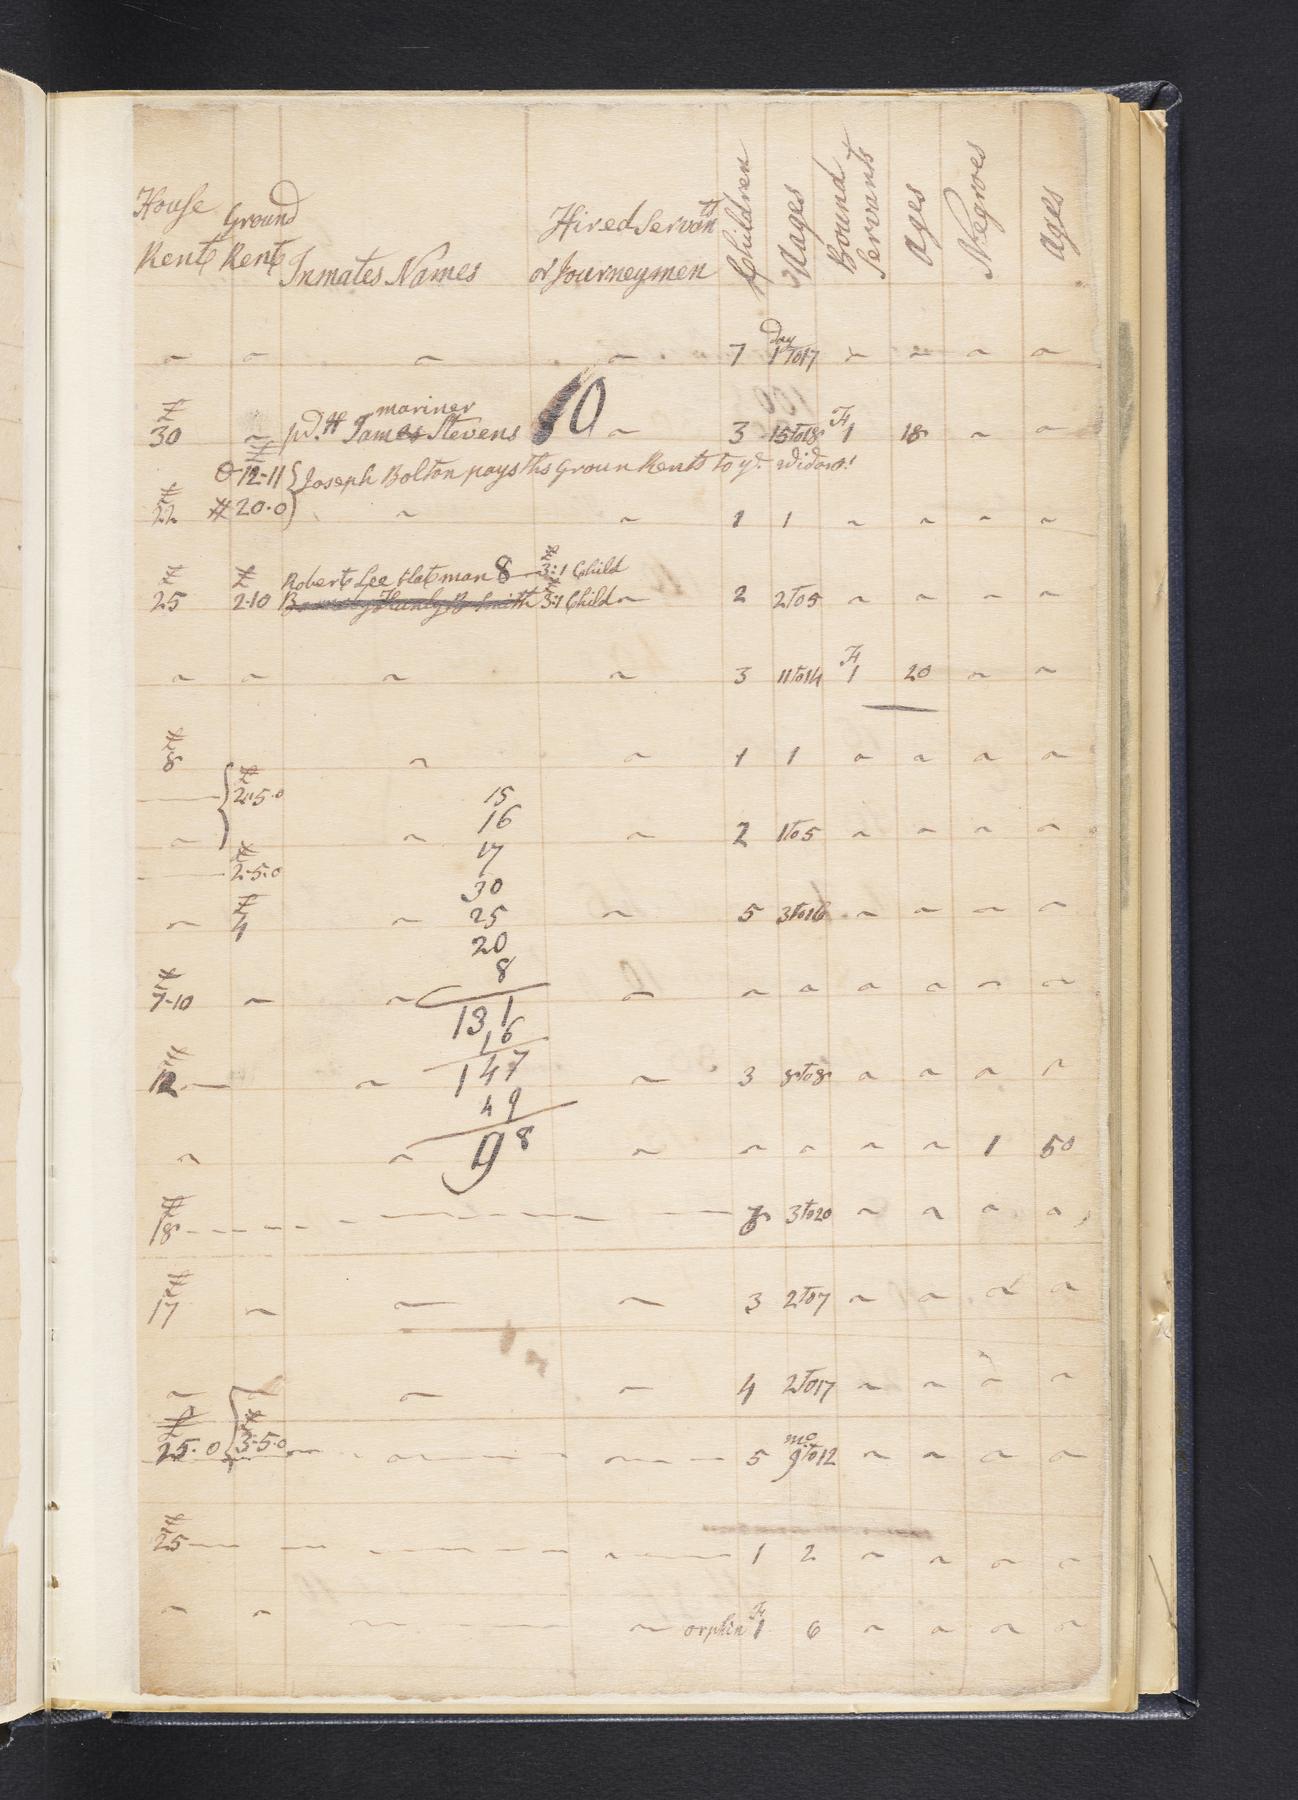 House Rent Ground Rent Inmates Names Hired Servants or Journeymen Children Ages Bound Servants Ages Negroes Ages
~ ~ ~ ~ 7 1 day to 17 ~ ~ ~ ~
£ 30 ~ pd. # James Stevens mariner 10 ~ 3 15 to 18 F 1 18 ~ ~
12-11 { Joseph Bolton pays ths Groun Rent to ye. widow!
£ 22 # 20.0 } ~ ~ 1 1 ~ ~ ~ ~
Robert Lee flatman 8 — 3:1 Child
£ 25 £ 2-10 Smith 3:1 Child ~ 2 2 to 5 ~ ~ ~ ~
~ ~ ~ ~ 3 11 to 14 F 1 20 ~ ~
£ 8 ~ ~ 1 1 ~ ~ ~ ~
{ £ 2.5.0 15
16
~ ~ ~ 2 1 to 5 ~ ~ ~ ~
17
£ 2.5.0
30
~ £ 4 ~ 25 ~ 5 3 to 16 ~ ~ ~ ~
20
8
£ 7-10 ~ ~ ~ ~ ~ ~ ~ ~ ~
131
16
£ 12 — ~ 147 ~ 3 8 to 8 ~ ~ ~ ~
49
98
~ ~ ~ ~ ~ ~ ~ 1 50
£ 18 - - - - 3 to 20 ~ ~ ~ ~
£ 17 ~ ~ ~ 3 2 to 7 ~ ~ ~ ~
~ ~ ~ 4 2 to 17 ~ ~ ~ ~
£ 25.0 { £ 3-5.0 ~ ~ ~ 5 9 mo to 12 ~ ~ ~ ~
£ 25 — - - - 1 2 ~ ~ ~ ~
~ ~ - - ~ orphin F 1 6 ~ ~ ~ ~